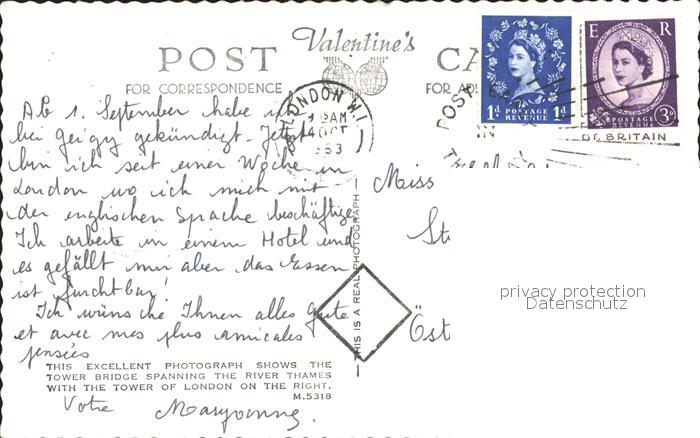 Valentine's
POST CA
FOR CORRESPONDENCE FOR AD
LONDON W.1
9 AM
4 OCT
POSTAGE REVENUE
1d 1d
E R
POSTAGE REVENUE
3d
POST EA
IN
OF BRITAIN
Ab 1. September habe ich
bei geigy gekündigt. Jetzt
bin ich seit einer Woche in
London wo ich mich mit
der englischen Sprache beschäftige.
Ich arbeite in einem Hotel und
es gefällt mir aber das Essen
ist furchtbar!
Ich wünsche Ihnen alles gute
et avec mes plus amicales
pensées
Votre Maryvonne.
THIS IS A REAL PHOTOGRAPH
THIS EXCELLENT PHOTOGRAPH SHOWS THE
TOWER BRIDGE SPANNING THE RIVER THAMES
WITH THE TOWER OF LONDON ON THE RIGHT.
M.5318
Miss
St
Öst
privacy protection
Datenschutz